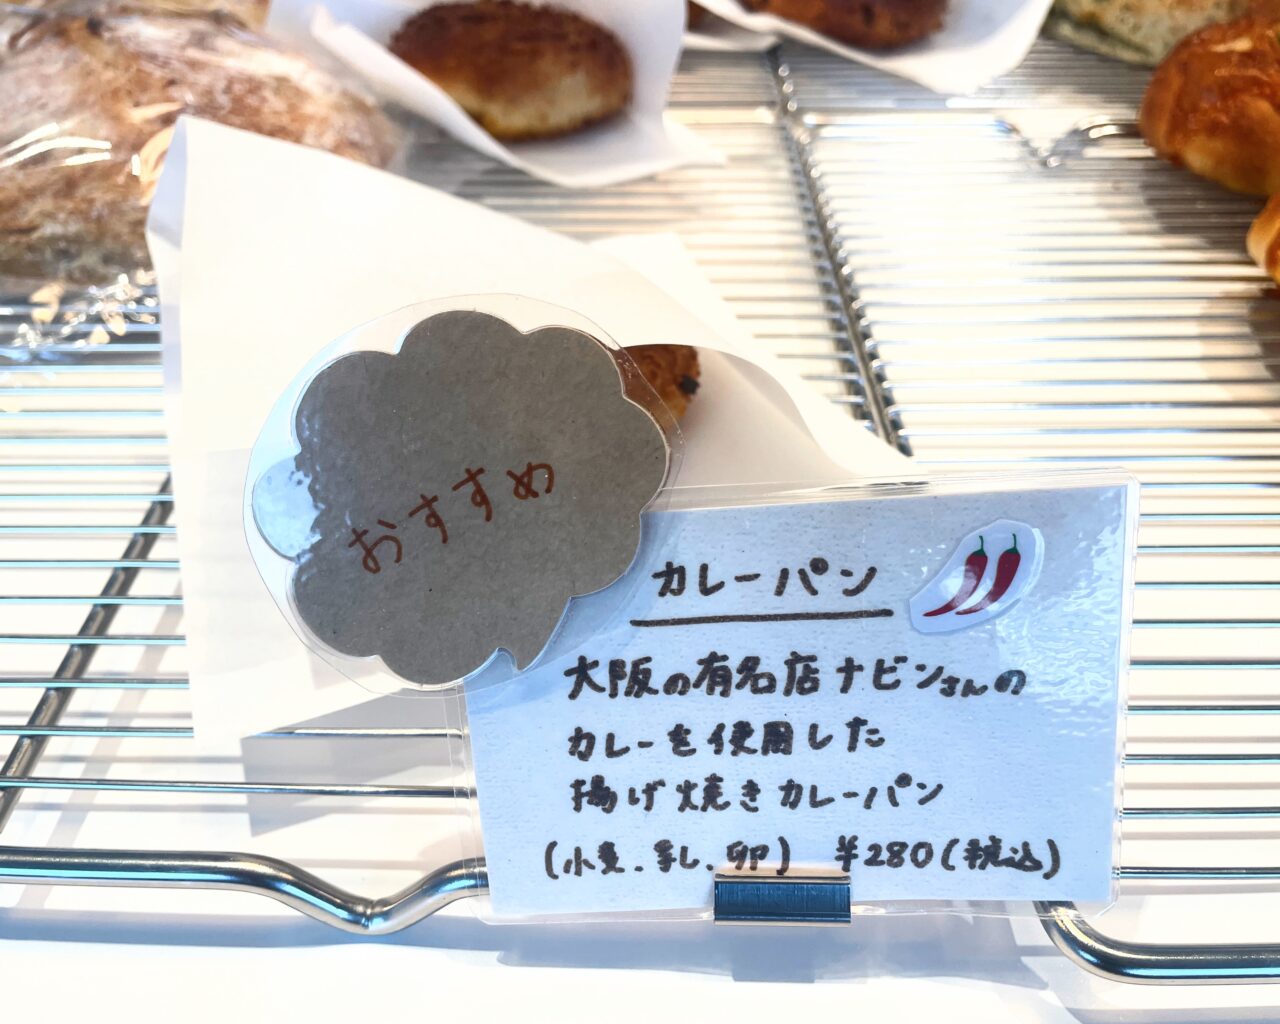 おすすめ
カレーパン
大阪の有名店ナビンさんの
カレーを使用した
揚げ焼きカレーパン
(小麦.乳.卵) ¥280(税込)